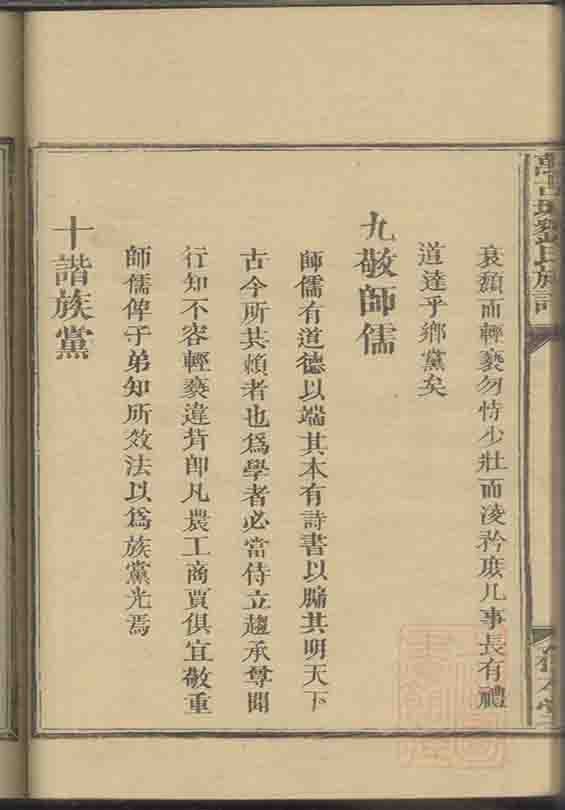 衰頹而輕褻勿恃少壯而凌矜庶几事長有禮
道達乎鄉黨矣
九敬師儒
師儒有道德以端其本有詩書以牖其明天下
古今所共賴者也爲學者必當侍立趨承尊聞
行知不容輕褻違背卽凡農工商賈俱宜敬重
師儒俾子弟知所效法以爲族黨光焉
十諧族黨